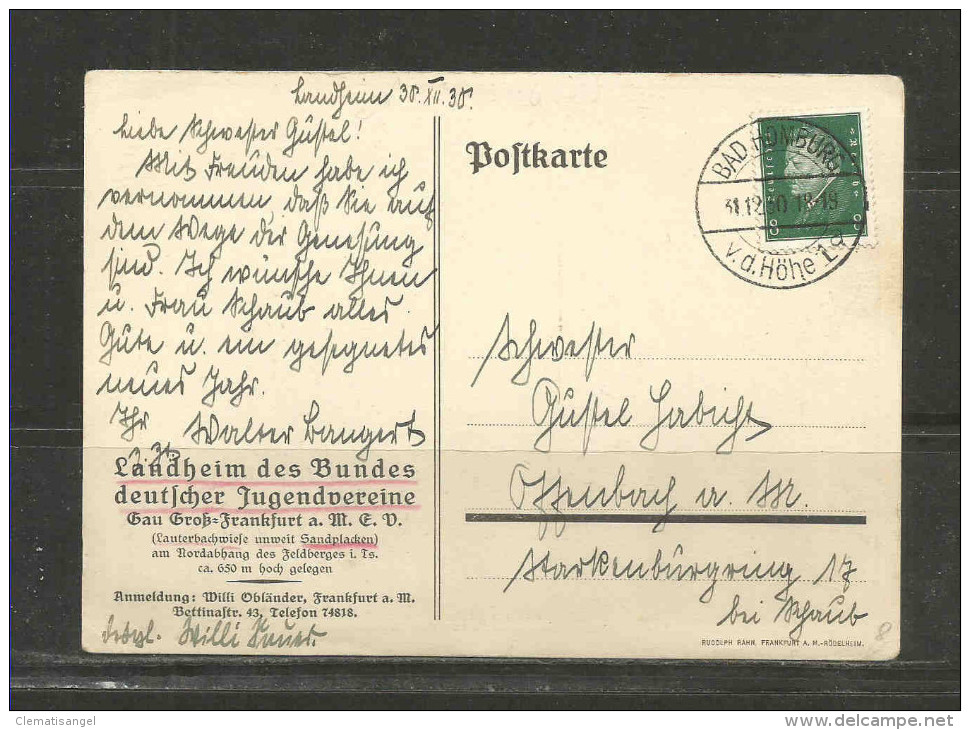 Landheim 30. XII. 30.
Liebe Schwester Güstel!
Mit Freuden habe ich
vernommen, daß Sie auf
dem Wege der Genesung
sind. Ich wünsche Ihnen
u. Frau Schaub alles
Gute u. ein gesegnetes
neues Jahr.
Ihr Walter Bangert
z. Zt.
Landheim des Bundes
deutscher Jugendvereine
Gau Groß-Frankfurt a. M. E. V.
(Lauterbachwiese unweit Sandplacken)
am Nordabhang des Feldberges i. Ts.
ca. 650 m hoch gelegen
Anmeldung: Willi Obländer, Frankfurt a. M.
Bettinastr. 43, Telefon 74818.
desgl. Willi
Postkarte
BAD HOMBURG
31.12.30.18-19
v.d.Höhe 1a
8 8
Schwester
Güstel Habicht
Offenbach a. M.
Starkenbürgring 17
bei Schaub
RUDOLPH RAHN, FRANKFURT A. M.-RÖDELHEIM.
8
Clematisangel
delcampe.net